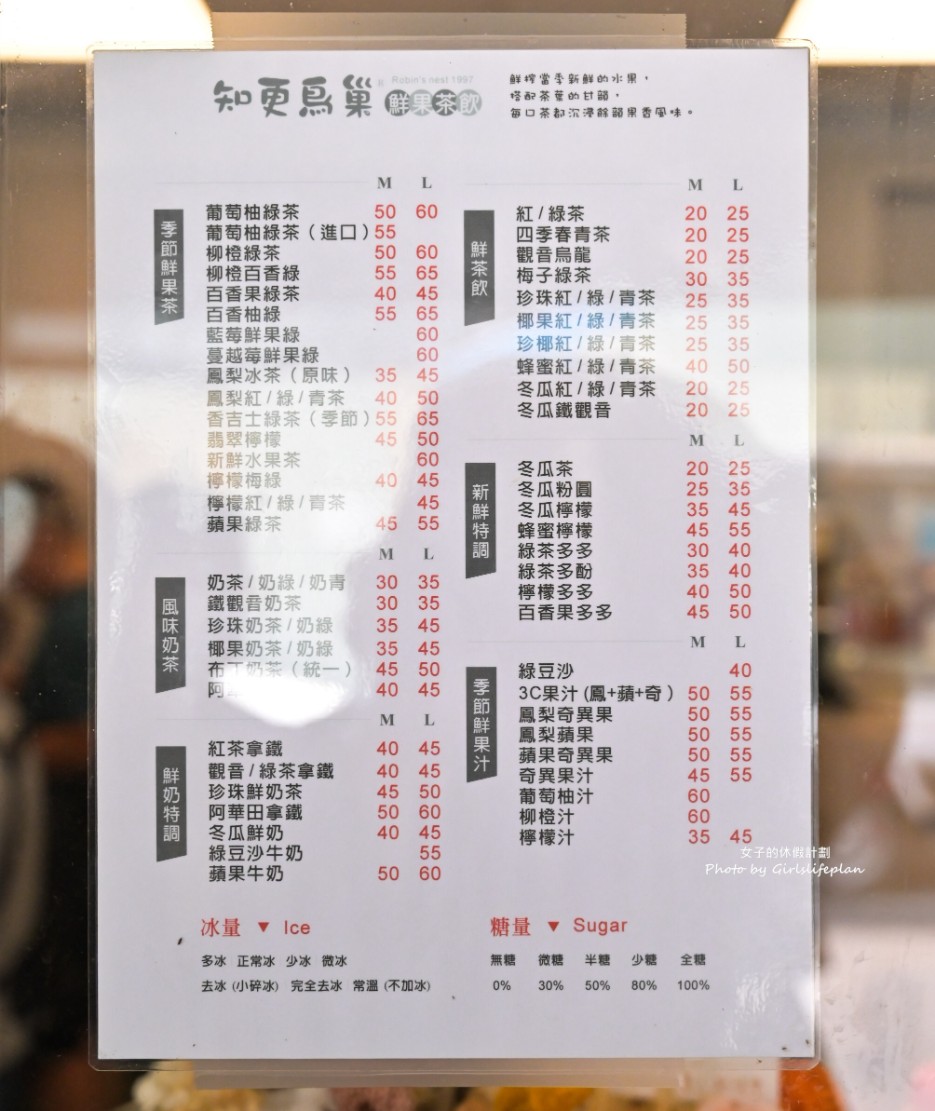 知更鳥巢 Robin's nest 1997 鮮果茶飲
鮮榨當季新鮮的水果，
搭配茶葉的甘韻，
每口茶都沉浸餘韻果香風味。
季節鮮果茶
M L
葡萄柚綠茶 50 60
葡萄柚綠茶（進口）55
柳橙綠茶 50 60
柳橙百香綠 55 65
百香果綠茶 40 45
百香柚綠 55 65
藍莓鮮果綠 60
蔓越莓鮮果綠 60
鳳梨冰茶（原味） 35 45
鳳梨紅/綠/青茶 40 50
香吉士綠茶（季節）55 65
翡翠檸檬 45 50
新鮮水果茶 60
檸檬梅綠 40 45
檸檬紅/綠/青茶 45
蘋果綠茶 45 55
風味奶茶
M L
奶茶/奶綠/奶青 30 35
鐵觀音奶茶 30 35
珍珠奶茶/奶綠 35 45
椰果奶茶/奶綠 35 45
布丁奶茶（統一） 45 50
阿 40 45
鮮奶特調
M L
紅茶拿鐵 40 45
觀音/綠茶拿鐵 40 45
珍珠鮮奶茶 45 50
阿華田拿鐵 50 60
冬瓜鮮奶 40 45
綠豆沙牛奶 55
蘋果牛奶 50 60
鮮茶飲
M L
紅/綠茶 20 25
四季春青茶 20 25
觀音烏龍 20 25
梅子綠茶 30 35
珍珠紅/綠/青茶 25 35
椰果紅/綠/青茶 25 35
珍椰紅/綠/青茶 25 35
蜂蜜紅/綠/青茶 40 50
冬瓜紅/綠/青茶 20 25
冬瓜鐵觀音 20 25
新鮮特調
M L
冬瓜茶 20 25
冬瓜粉圓 25 35
冬瓜檸檬 35 45
蜂蜜檸檬 45 55
綠茶多多 30 40
綠茶多酚 35 40
檸檬多多 40 50
百香果多多 45 50
季節鮮果汁
M L
綠豆沙 40
3C果汁(鳳+蘋+奇) 50 55
鳳梨奇異果 50 55
鳳梨蘋果 50 55
蘋果奇異果 50 55
奇異果汁 45 55
葡萄柚汁 60
柳橙汁 60
檸檬汁 35 45
冰量 ▼ Ice
多冰 正常冰 少冰 微冰
去冰 (小碎冰) 完全去冰 常溫 (不加冰)
糖量 ▼ Sugar
無糖 微糖 半糖 少糖 全糖
0% 30% 50% 80% 100%
女子的休假計劃
Photo by Girlslifeplan